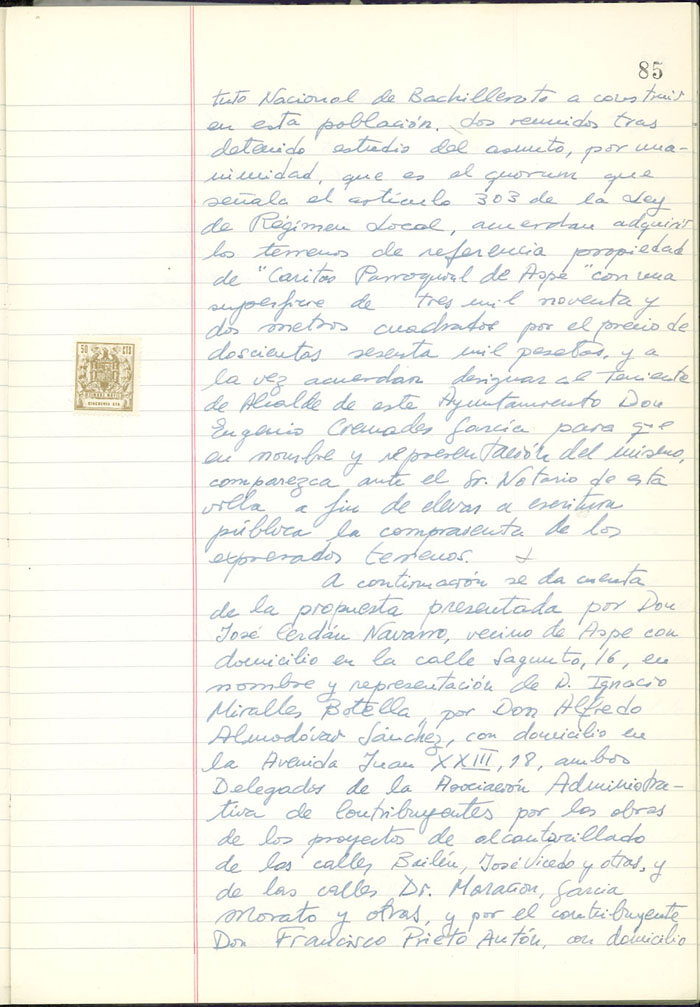 85
tuto Nacional de Bachillerato a construir
en esta población. Los reunidos tras
detenido estudio del asunto, por una-
nimidad, que es el quorum que
señala el artículo 303 de la Ley
de Régimen Local, acuerdan adquirir
los terrenos de referencia propiedad
de "Caritas Parroquial de Aspe" con una
superficie de tres mil noventa y
dos metros cuadrados por el precio de
doscientas sesenta mil pesetas, y a
la vez acuerdan designar al Teniente
de Alcalde de este Ayuntamiento Don
Eugenio Cremades García para que
en nombre y representación del mismo,
comparezca ante el Sr. Notario de esta
villa a fin de elevar a escritura
pública la compraventa de los
expresados terrenos.
A continuación se da cuenta
de la propuesta presentada por Don
José Cerdán Navarro, vecino de Aspe con
domicilio en la calle Sagunto, 16, en
nombre y representación de D. Ignacio
Miralles Botella, por Don Alfredo
Almodóvar Sánchez, con domicilio en
la Avenida Juan XXIII, 18, ambos
Delegados de la Asociación Administra-
tiva de Contribuyentes por las obras
de los proyectos de alcantarillado
de las calles Bailén, José Vicedo y otras, y
de las calles Dr. Marañon, Garcia
Morato y otras, y por el contribuyente
Don Francisco Prieto Antón, con domicilio
50 CTS